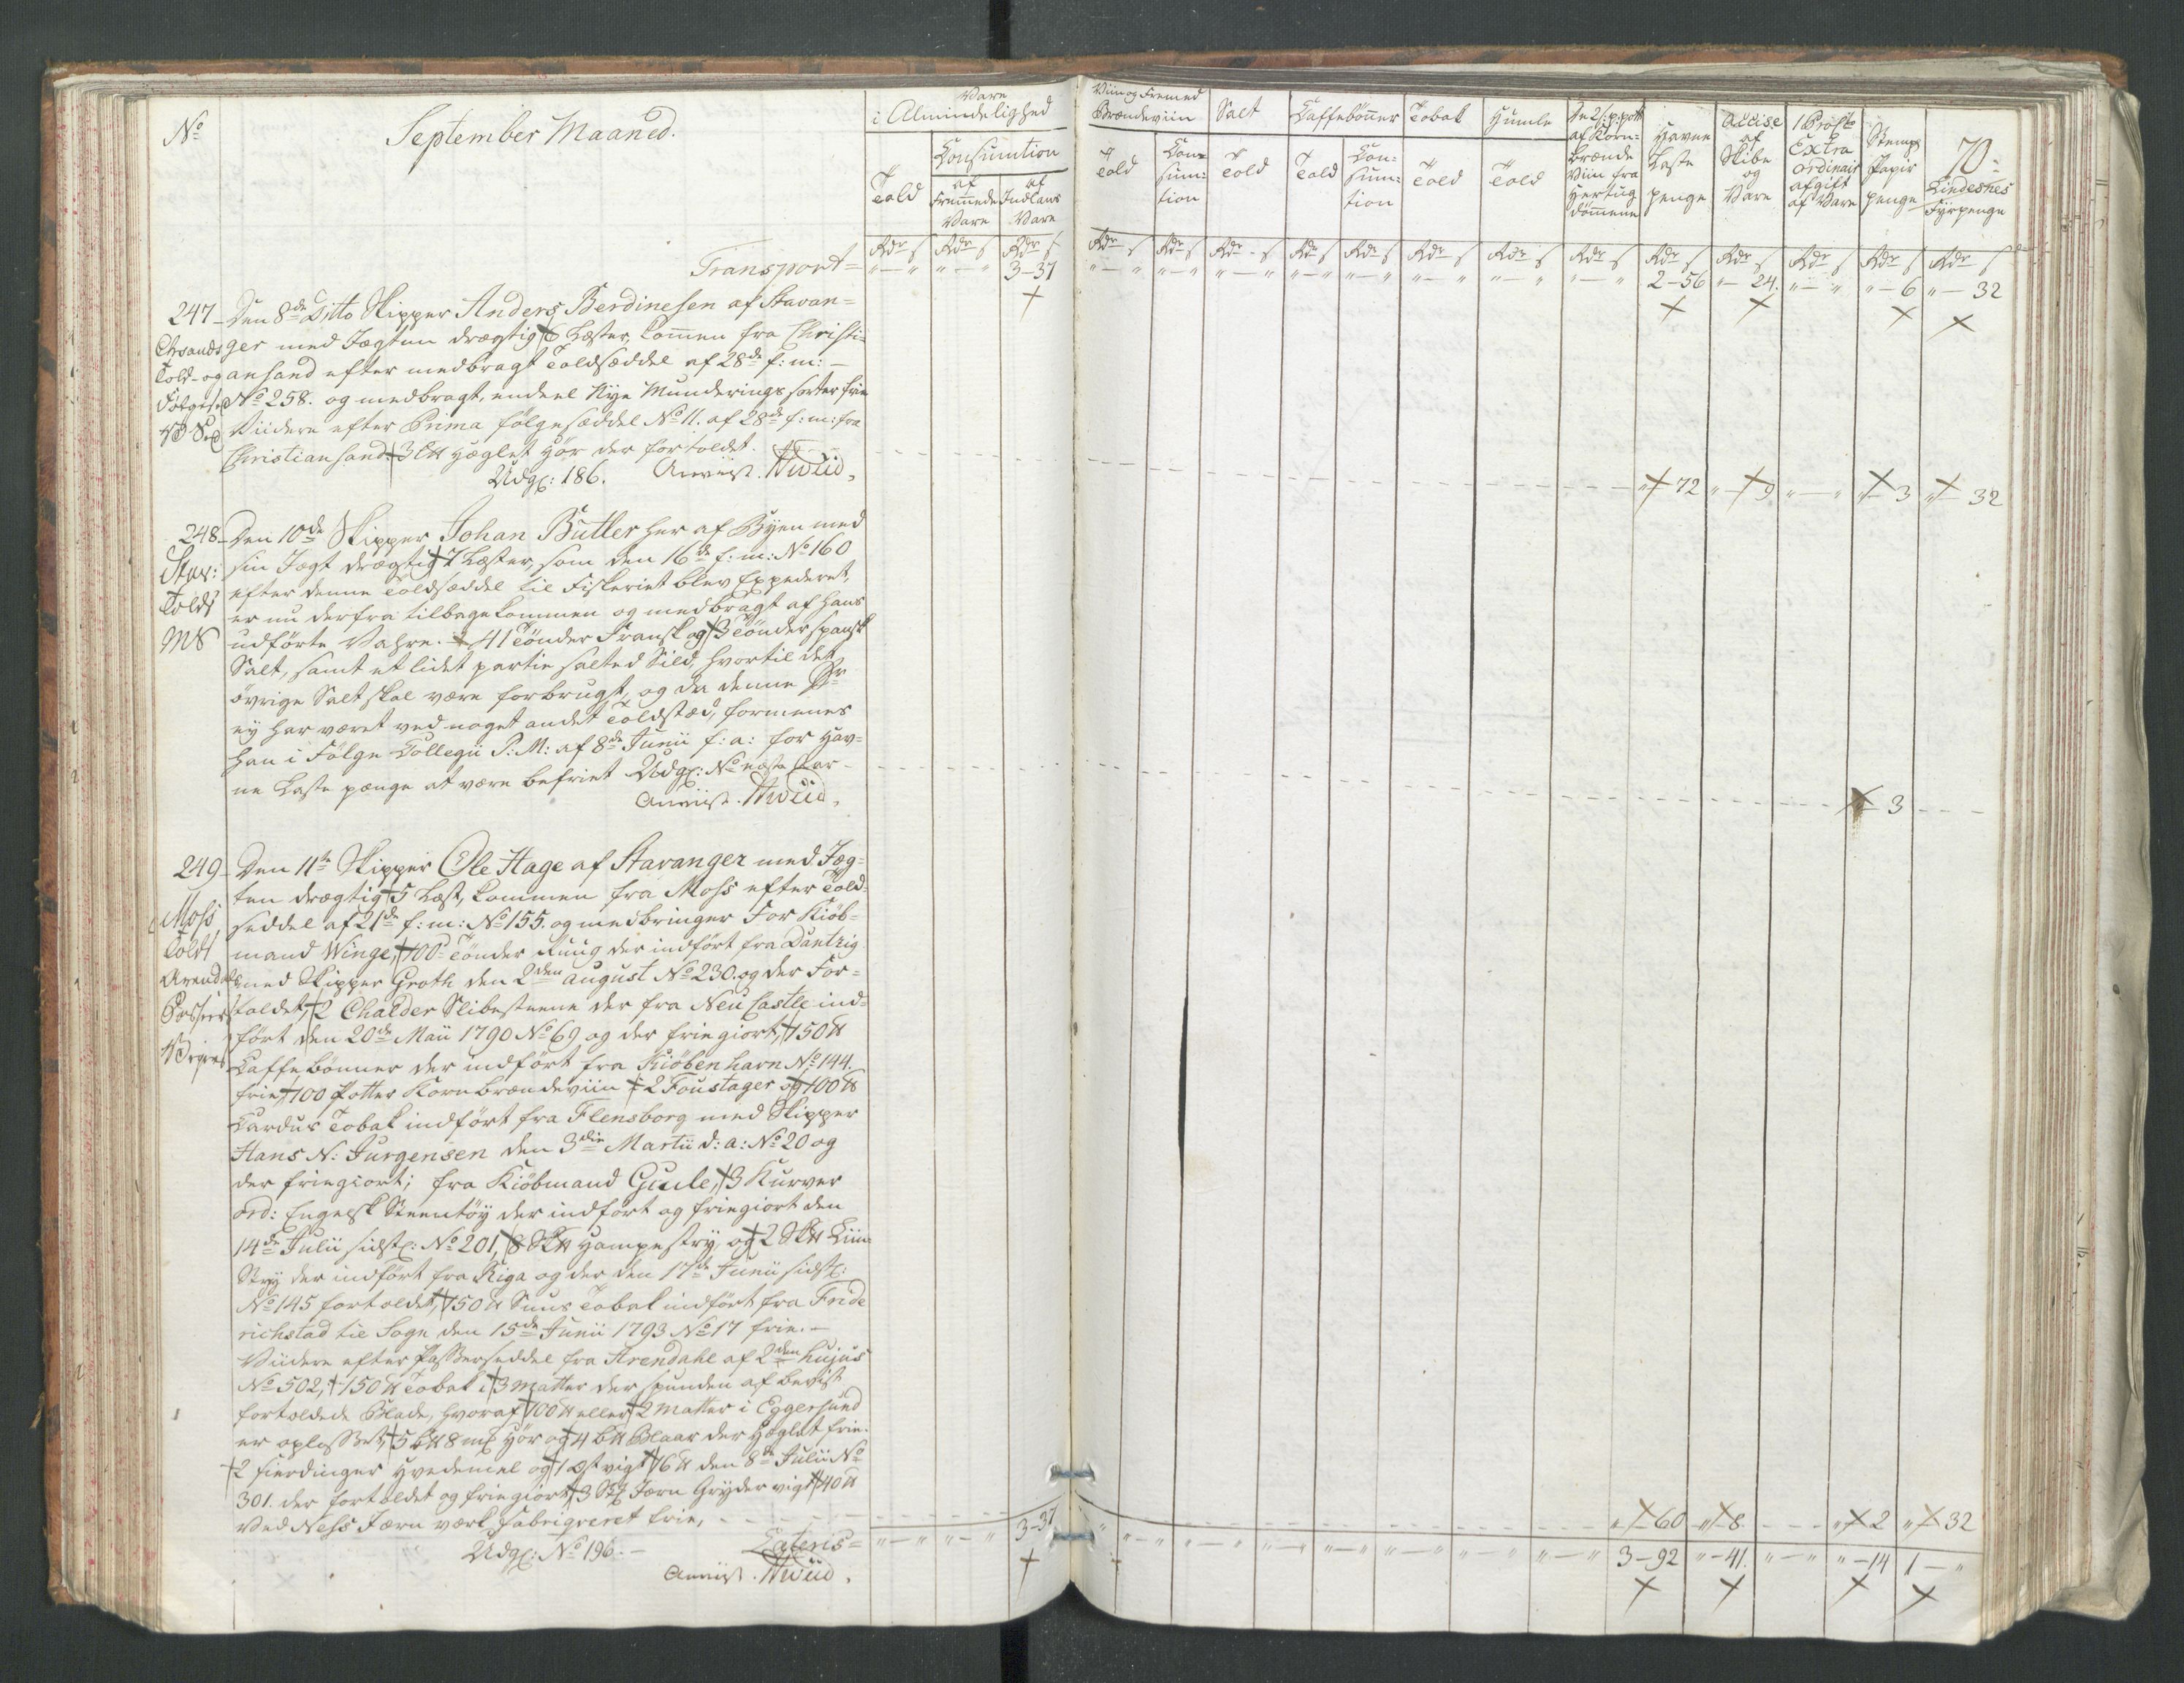 No
September Maaned.
Vare
i Almindelighed
Told
Consumtion
af Fremmede Vare
af Indlans Vare
Viin og Fremed Brændeviin
Told
Consumtion
Salt
Told
Caffebönner
Told
Consumtion
Tobak
Told
Humle
Told
De 2 s: p: pott af Korn-
brænde
Viin fra
Hertug
dömmene
Havne
Laste
penge
Accise
af
Skibe
og
Vare
1 Pro Cto
Extra
ordinair
afgift
af Vare
Stempl
Papir
penge
70.
Lindesnes
Fyrpenge
Rdr s Rdr s Rdr s Rdr s Rdr s Rdr s Rdr s Rdr s Rdr s Rdr s Rdr s Rdr s Rdr s Rdr s Rdr s Rdr s
Transport= 3-37 2-56 24. 6 32
247 Den 8de Ditto Skipper Anders Berdinesen af Stavan=
Chrsands ger med Jagten drægtig 6 Læster, kommen fra Christi=
Told- og ansand efter medbragt Toldsæddel af 28de f: m: –
Fölges No 258. og medbragt, endeel Nye Munderings sorter frie
Viidere efter Prima fölgesæddel No 11. af 28de f: m: fra
Christiansand 3 hæglet Hör der fortoldet.
Udg: 186. Anviist. 72 9 3 32
248 Den 10de Skipper Johan Butler her af Byen med
Stav: sin Jagt drægtig 7 Læster, som den 16de f: m: No 160
Tolds efter denne Toldsæddel til Fiskeriet blev Expederet,
er nu derfra tilbagekommen og medbragt af hans
MS udförte Vahre. 41 Tönder Fransk og 3 Tönder spansk
Salt, samt et lidet partie salted Sild, hvortil det
övrige Salt skal være forbrugt, og da denne
ey har været ved noget andet Toldsted, formenes
han i Fölge Collegii P: M: af 8de Junii f: a: for Hav=
ne Laste penge at være befriet Udg: No
Anviist. 3
249 Den 11te Skipper Ole Hage af Stavanger med Jag=
ten drægtig 5 Læst, kommen fra Moss efter Told=
Moss seddel af 21de f: m: No 155. og medbringer For Kiöb=
Tolds mand Winge, 100 Tönder Ruug der indfört fra Dantzig
Arendals med Skipper Groth den 2den August No 230. og der For=
Passeer toldet, 2 Chalder Slibesteene der fra New Castle ind=
fört den 20de Maii 1790 No 69 og der friegiort, 150
Caffebönner der indfört fra Kiöbenhavn No 144.
frie, 100 Potter Kornbrændeviin i 2 Foustager og 100
Cardus Tobak indfört fra Flensborg med Skipper
Hans N: Jurgensen den 3die Martii d: a: No 20 og
der friegiort; fra Kiöbmand Guule, 3 Kurver
ord: Engelsk Steentöy der indfört og friegiort den
14de Julii sidstl: No 201, 8 Hampestry, og 2 Liin=
Stry der indfört fra Riga og der den 17de Junii sidstl:
No 145 fortoldet, 150 Snuus Tobak indfört fra Fride
richstad til Sogn den 15de Junii 1793 No 17 frie. –
Viidere efter Passeerseddel fra Arendahl af 2den hujus
No 502, 150 Tobak i 3 Matter der spunden af beviist
fortoldede Blade, hvoraf 100 eller 2 Matter i Eggersund
er oplosset, 5 8 Hör og 4 Blaar der hæglet frie.
2 Fierdinger Hvedemel og 1 vigt 16 den 8de Julii No
301. der fortoldet og friegiort, 3 Jern Gryder vigt 40
Ved Næss Jern værk fabriqueret frie, 60 8 2 32
Lateris= 3-37 3-92 41. 14 1
Udg: No 196. –
Anviist.